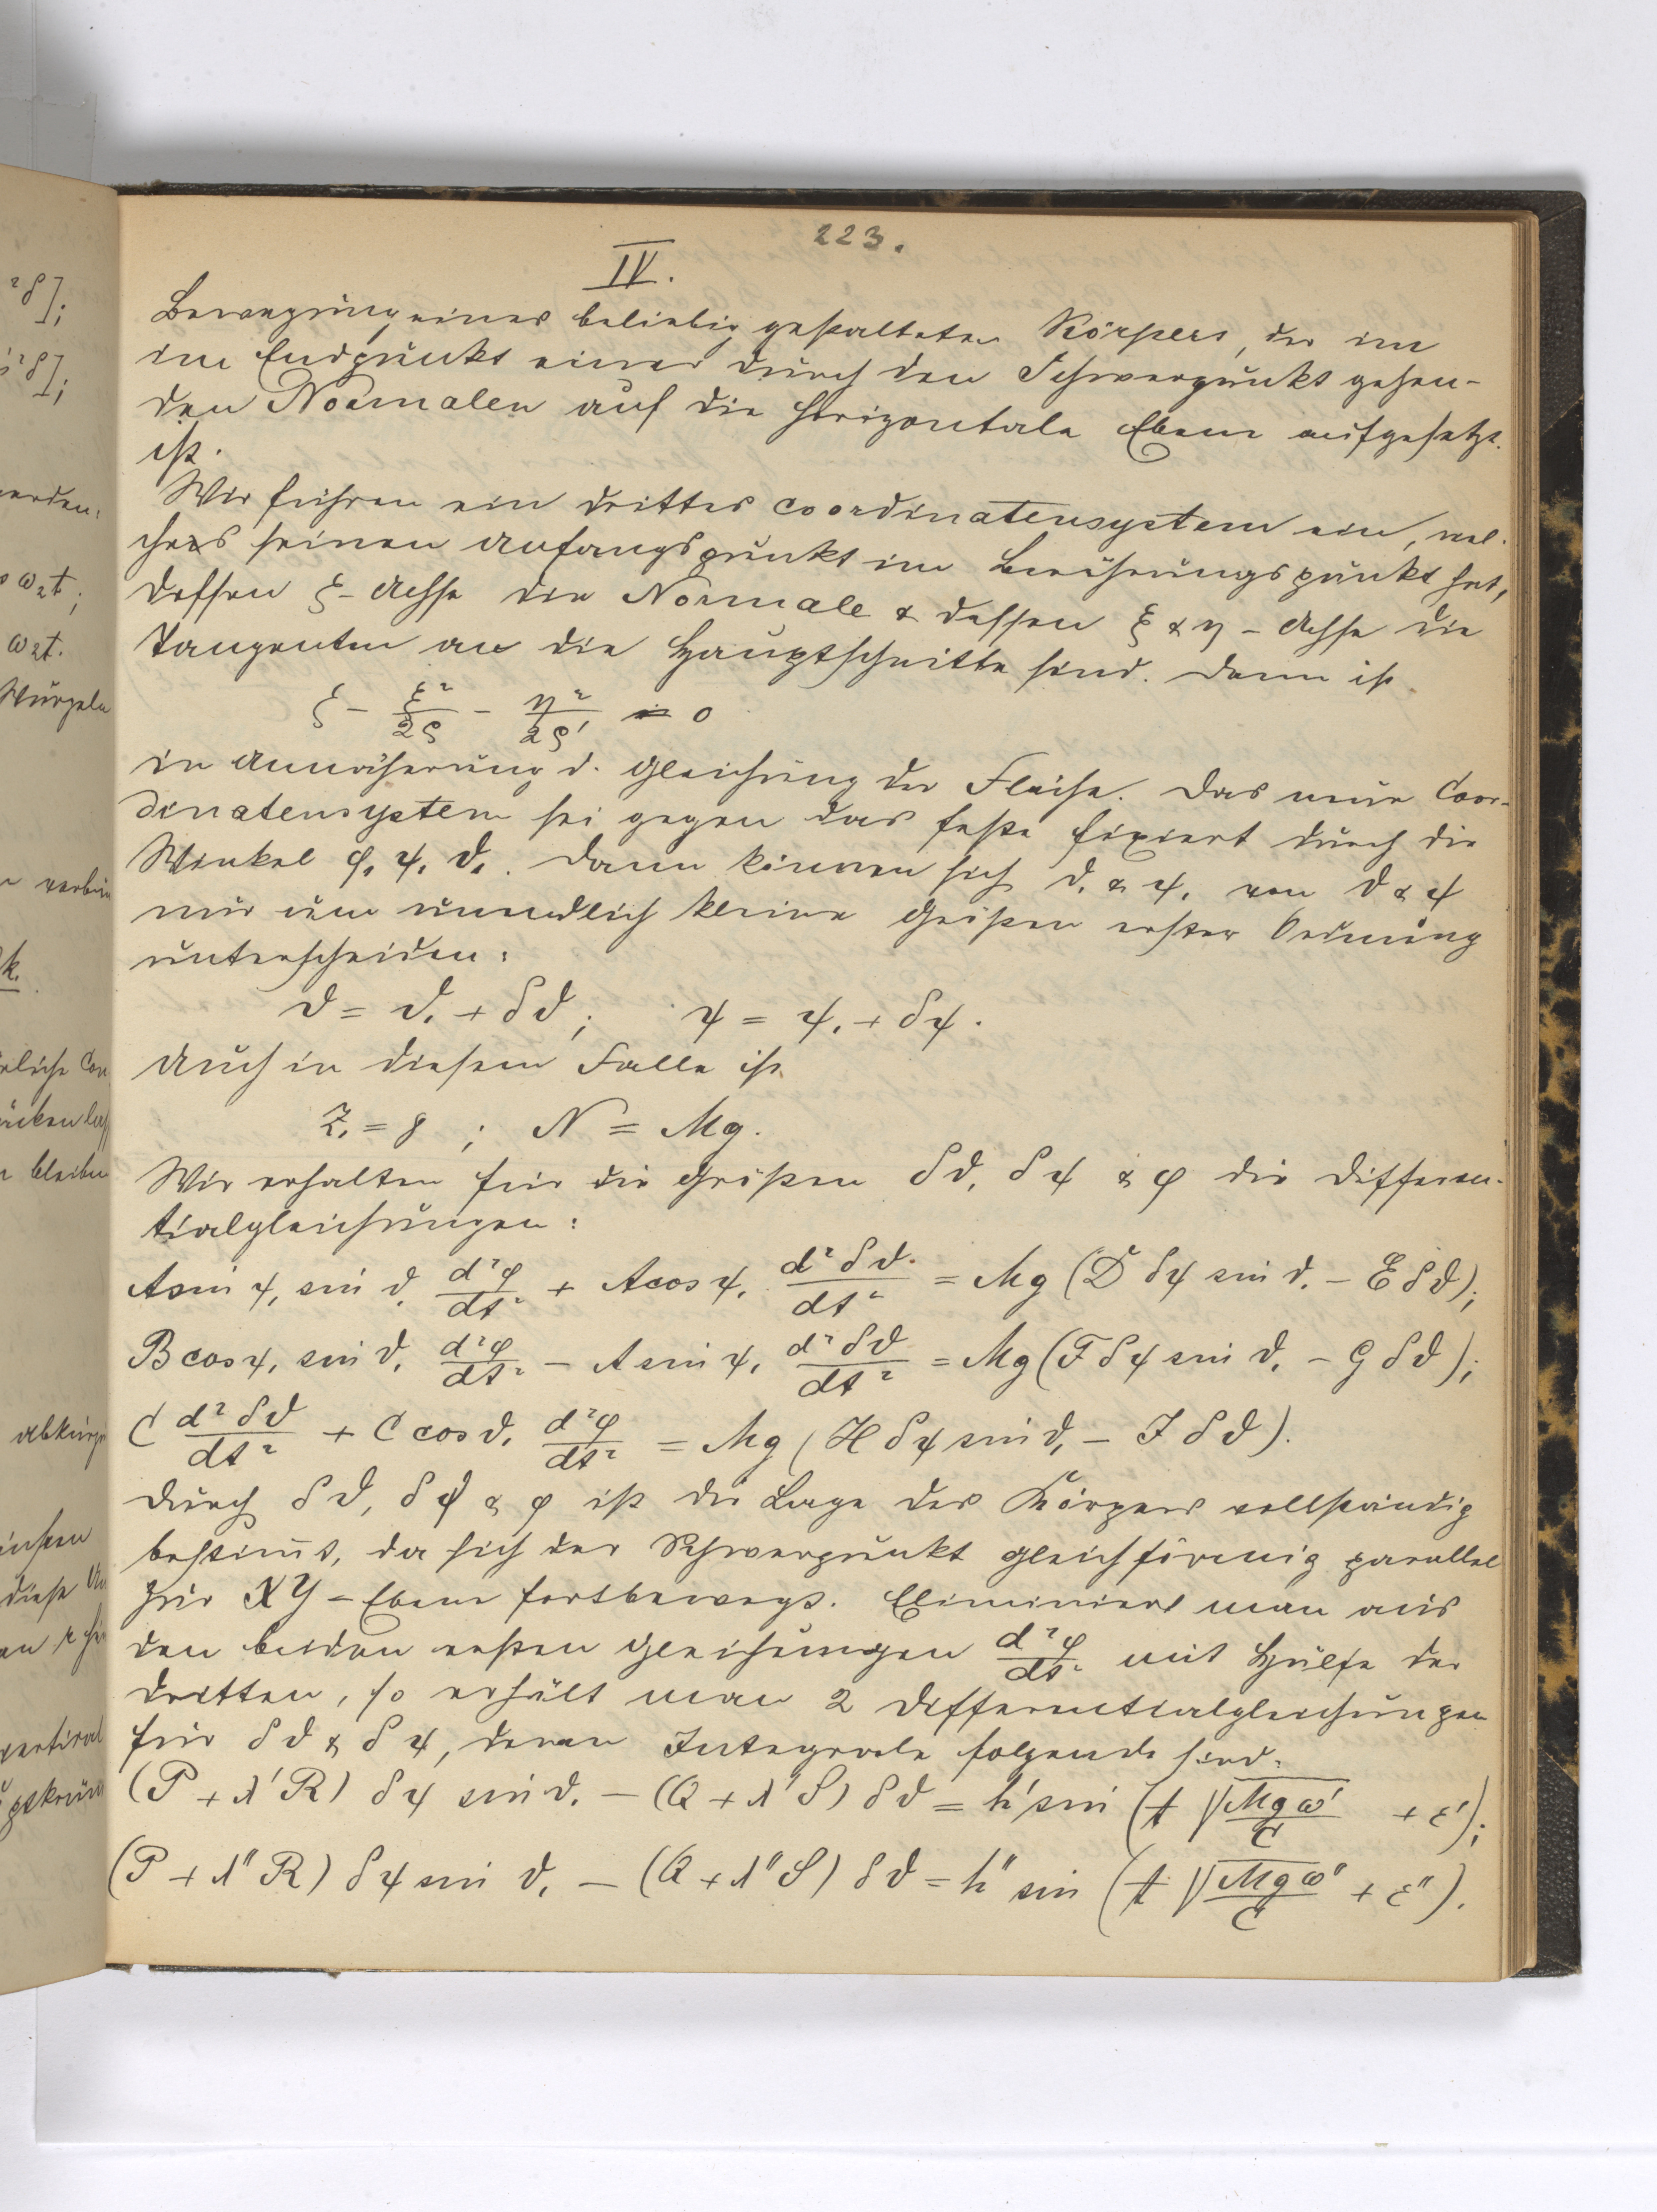 ²δ];
²δ];
werden.
ω₂t;
ω₂t.
Wurzeln
k.
bleiben
223.
IV.
Bewegung eines beliebig gestalteten Körpers, der im
im Endpunkt einer durch den Schwerpunkt gehen-
den Normalen auf die horizontale Ebene aufgesetzt
ist.
Wir führen ein drittes Coordinatensystem ein, wel-
ches seinen Anfangspunkt im Berührungspunkt hat,
dessen ζ-Achse die Normale & dessen ξ & η-Achse die
Tangenten an die Hauptschnitte sind. Dann ist
ζ - ξ²/2ρ - η²/2ρ' = 0
in Annäherung d. Gleichung der Fläche. Das neue Coor-
dinatensystem sei gegen das feste fixiert durch die
Winkel φ, ψ, ϑ,. Dann können sich ϑ, & ψ, von ϑ & ψ
nur um unendlich kleine Größen erster Ordnung
unterscheiden:
ϑ = ϑ, + δϑ; ψ = ψ, + δψ.
Auch in diesem Falle ist
Z, = γ ; N = Mg.
Wir erhalten für die Größen δϑ, δψ & φ die Differen-
tialgleichungen:
A sin ψ, sin ϑ, d²φ/dt² + A cos ψ, d²δϑ/dt² = Mg (D δψ sin ϑ, - E δϑ);
B cos ψ, sin ϑ, d²φ/dt² - A sin ψ, d²δϑ/dt² = Mg (F δψ sin ϑ, - G δϑ);
C d²δϑ/dt² + C cos ϑ, d²φ/dt² = Mg (H δψ sin ϑ, - J δϑ).
Durch δϑ, δψ & φ ist die Lage des Körpers vollständig
bestim̄t, da sich der Schwerpunkt gleichförmig parallel
zur XY-Ebene fortbewegt. Eliminiert man aus
den beiden ersten Gleichungen d²φ/dt² mit Hülfe der
dritten, so erhält man 2 Differentialgleichungen
für δϑ & δψ, deren Integrale folgende sind:
(P + λ'R) δψ sin ϑ, - (Q + λ'S) δϑ = h' sin (t √Mgω'/C + ε');
(P + λ''R) δψ sin ϑ, - (Q + λ''S) δϑ = h'' sin (t √Mgω''/C + ε'').